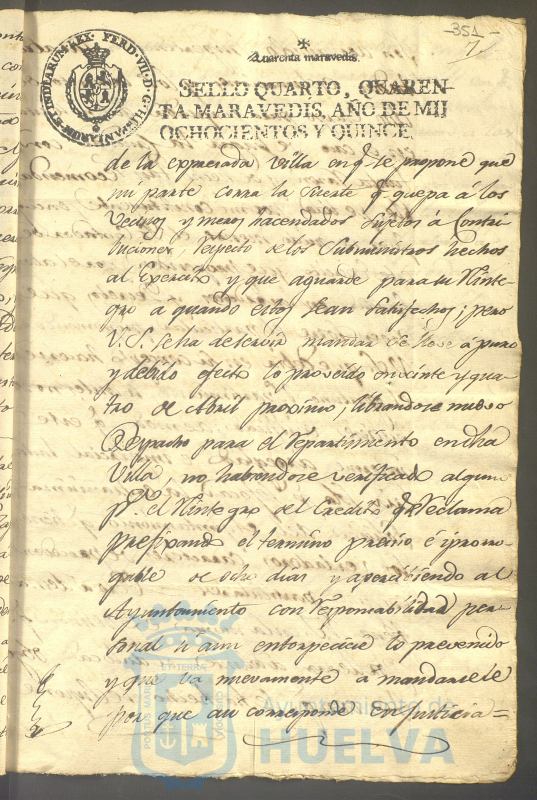 351
7
Quarenta maravedis.
SELLO QUARTO, QUAREN-
TA MARAVEDIS, AÑO DE MIL
OCHOCIENTOS Y QUINCE.
FERD. VII. D. G. HISPANIARUM ET INDIARUM REX.
de la expresada Villa en q.e le propone que
mi parte corra la suerte q. quepa á los
Vecinos y meros hacendados sujetos á Contri
buciones, respecto de los Subministros hechos
al Exercito, y que aguarde para su Reinte
gro a quando estos sean satisfechos; pero
V.S. se ha de servir mandar se lleve á puro
y debido efecto lo proveido en veinte y qua
tro de Abril proximo, librandose nuevo
Despacho para el Repartimiento en dha
Villa, no habiendose verificado alguno
p.a el Reintegro del Credito q. reclama
prefixando el termino preciso é ipro
gable de ocho dias y apercibiendo al
Ayuntamiento con responsabilidad per
sonal si aun entorpeciese lo prevenido
y que va nuevamente a mandarsele
por que asi corresponde en Justicia=
PORTUS MARIS
ET TERRÆ
CUSTODIA
Ayuntamiento de
HUELVA